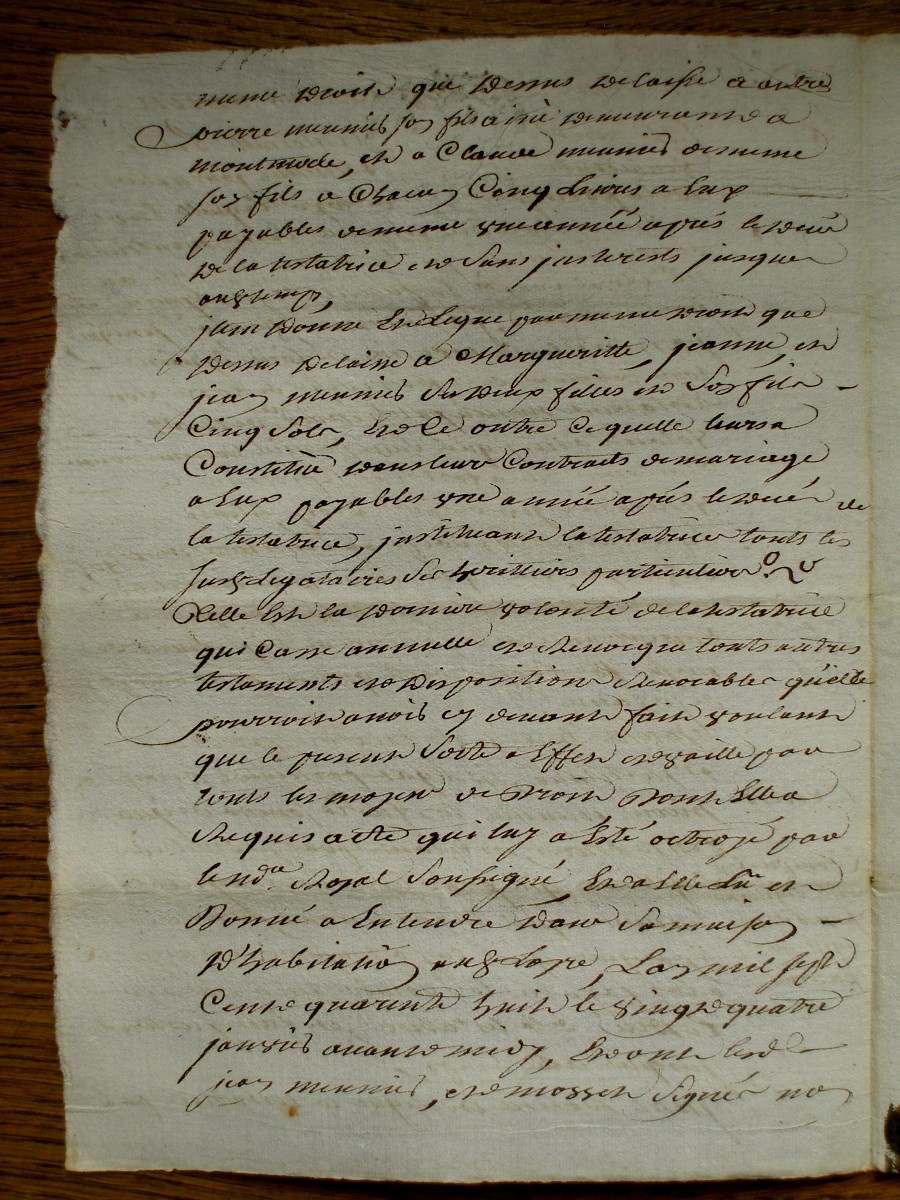 meme droit que dessus delaisse a autre
pierre meunier son fils ainé demeurant a
montmode, et a Claude meunier de meme
son fils a Chacun Cinq Livres a Eux
payables de meme une année aprés le decés
de la testatrice et sans jnterests jusques
aud temps,
jtem donne Et Legue par meme droit que
dessus delaisse a Margueritte, jeanne, et
jean meunier ses deux filles et son fils
Cinq Sols, Et Ce outre Ce quelle leurs a
Constitué dans leur Contracts de mariage
a Eux payables une année aprés le decés de
la testatrice, jnstituant la testatrice touts les
susd legataires ses heritiers particuliers
Telle Est la derniere volonté de la testatrice
qui Casse annulle et Revocque touts autres
testaments et dispositions Revocables qu'elle
pourroit avoir cy devant fait voulant
que le present Sorte a Effet et vaille par
touts les moyens de Droit Dont Elle a
Requis acte qui luy a Esté octroyé par
le nore Royal soussigné, Et a Elle Lu et
Donné a Entendre dans sa maison
D'habitation aud Lopre, Lan mil sept
Cent quarente huit le vingt quatre
janvier avant midy, Et ont lesd
jean meunier, et mosset signés non